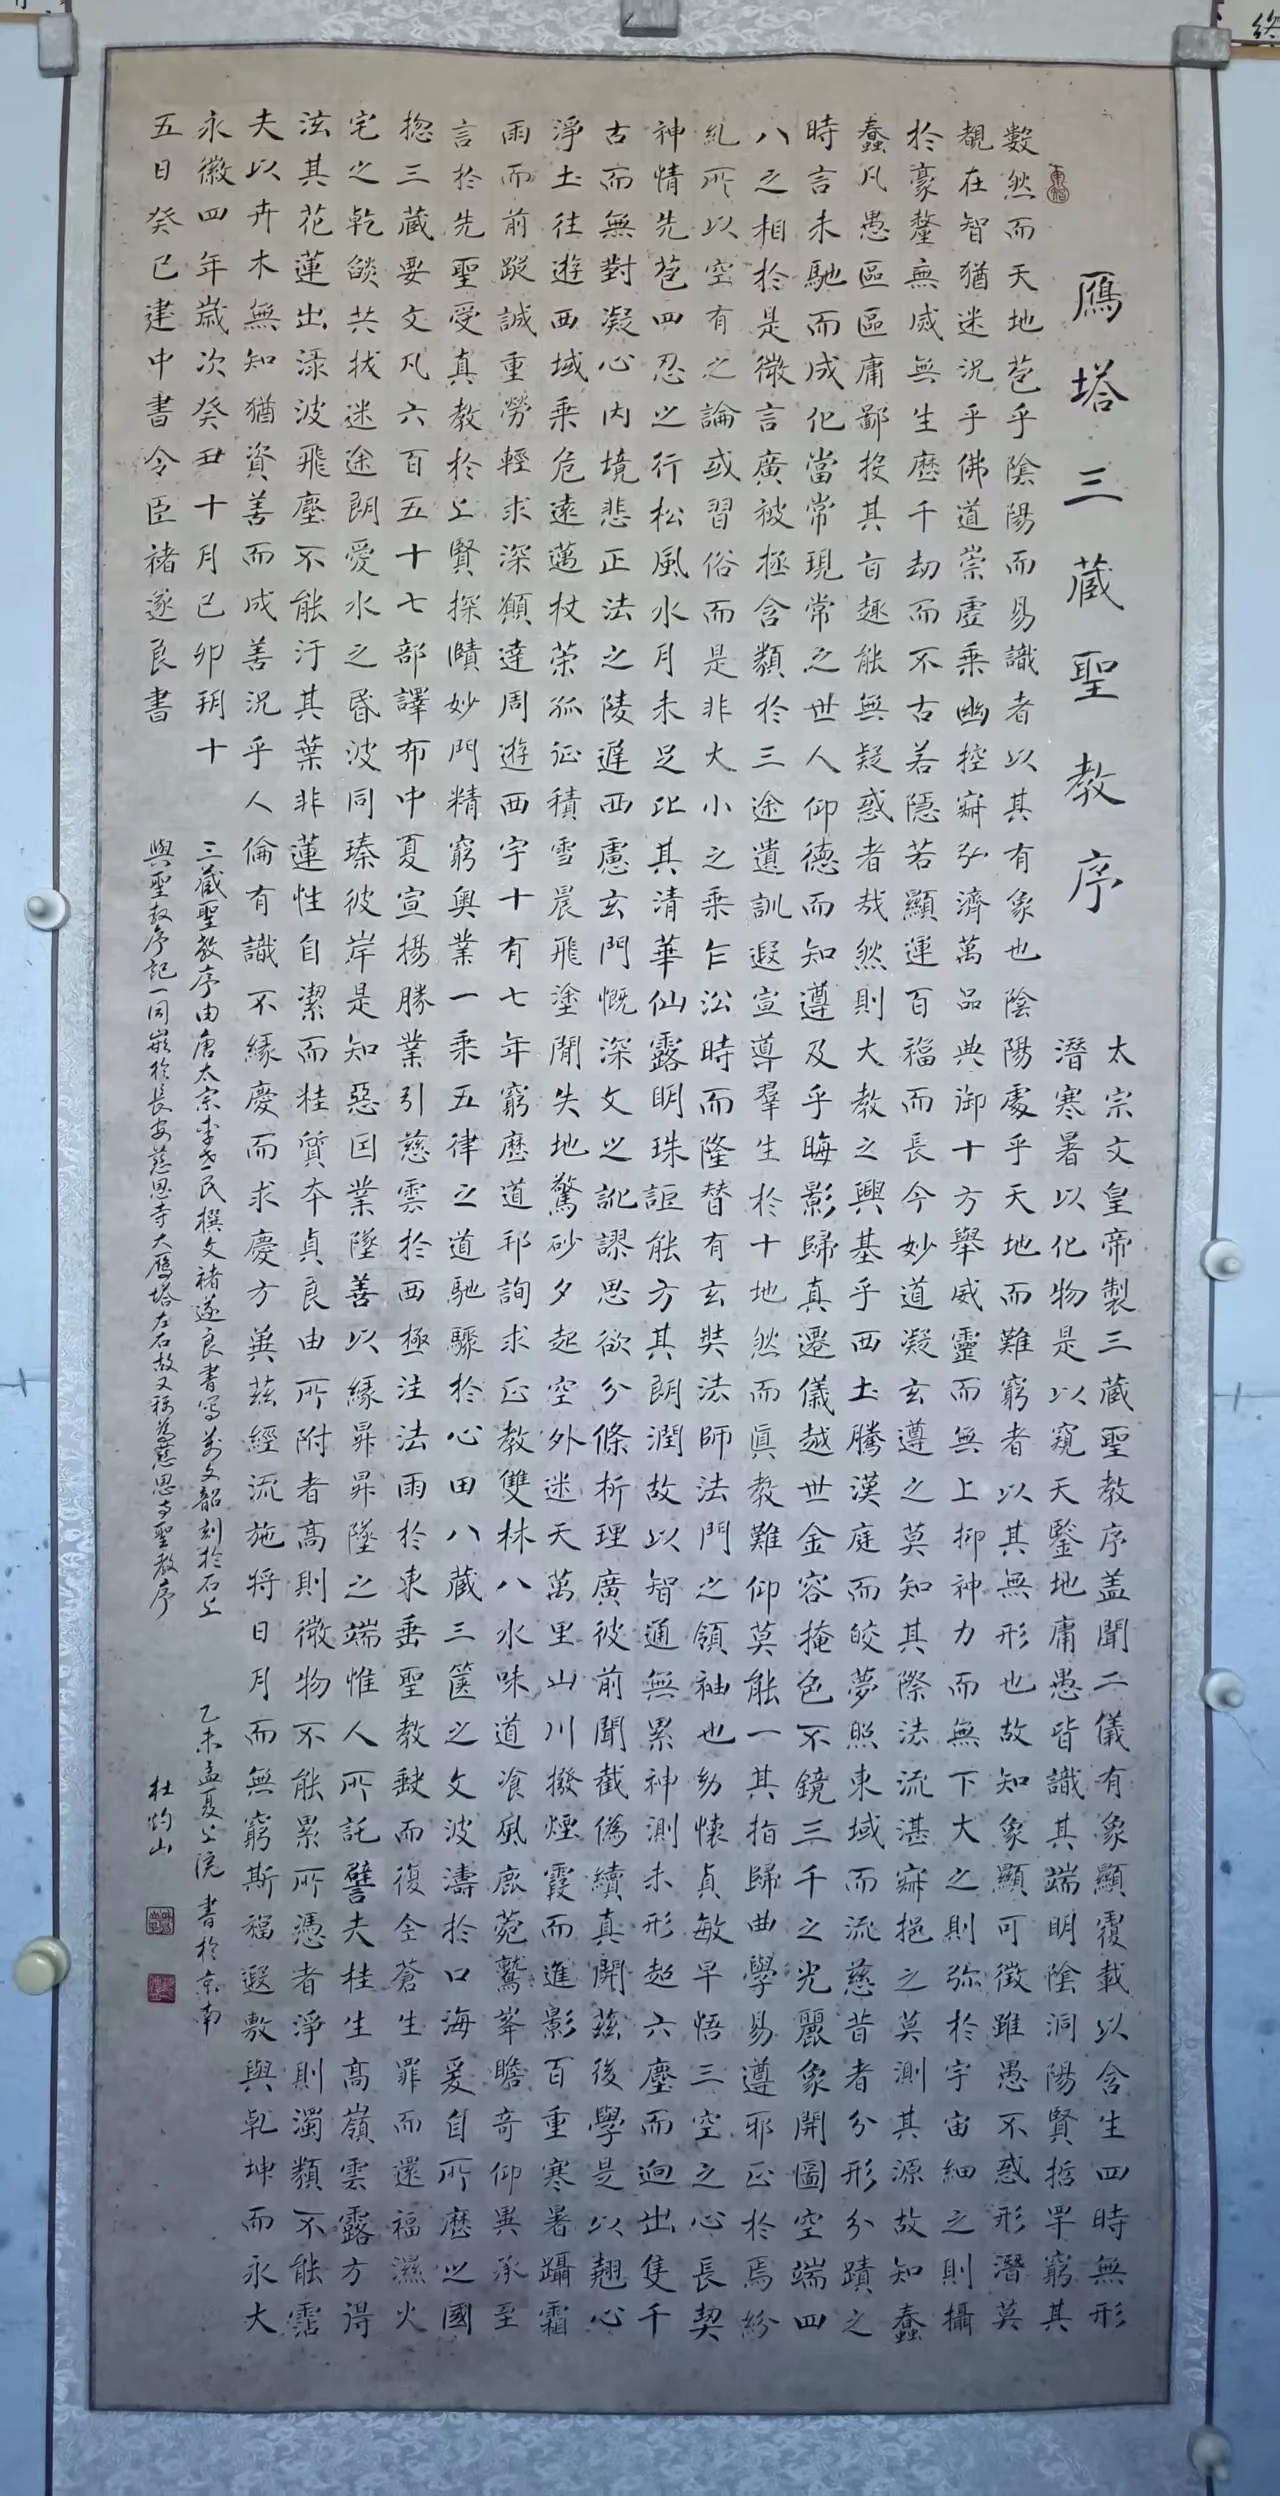 鴈塔三藏聖教序
太宗文皇帝製三藏聖教序盖聞二儀有象顯覆載以含生四時無形
潛寒暑以化物是以窺天鑒地庸愚皆識其端明陰洞陽賢哲罕窮其
數然而天地苞乎陰陽而易識者以其有象也陰陽處乎天地而難窮者以其無形也故知象顯可徵雖愚不惑形潛莫
覩在智猶迷況乎佛道崇虛乘幽控寂弘濟萬品典御十方舉威靈而無上抑神力而無下大之則弥於宇宙細之則攝
於豪釐無滅無生歷千劫而不古若隱若顯運百福而長今妙道凝玄遵之莫知其際法流湛寂挹之莫測其源故知蠢
蠢凡愚區區庸鄙投其旨趣能無疑惑者哉然則大教之興基乎西土騰漢庭而皎夢照東域而流慈昔者分形分蹟之
時言未馳而成化當常現常之世人仰德而知遵及乎晦影歸真遷儀越世金容掩色不鏡三千之光麗象開圖空端四
八之相於是微言廣被拯含類於三途遺訓遐宣導羣生於十地然而真教難仰莫能一其指歸曲學易遵邪正於焉紛
糺所以空有之論或習俗而是非大小之乘乍沿時而隆替有玄奘法師法門之領袖也幼懷貞敏早悟三空之心長契
神情先苞四忍之行松風水月未足比其清華仙露明珠詎能方其朗潤故以智通無累神測未形超六塵而迥出隻千
古而無對凝心內境悲正法之陵遲西慮玄門慨深文之訛謬思欲分條析理廣彼前聞截偽續真開茲後學是以翹心
淨土往遊西域乘危遠邁杖策孤征積雪晨飛塗閒失地驚砂夕起空外迷天萬里山川撥煙霞而進影百重寒暑躡霜
雨而前蹤誠重勞輕求深願達周遊西宇十有七年窮歷道邦詢求正教雙林八水味道飡風鹿菀鷲峯瞻奇仰異承至
言於先聖受真教於上賢探賾妙門精窮奧業一乘五律之道馳驟於心田八藏三篋之文波濤於口海爰自所歷之國
揔三藏要文凡六百五十七部譯布中夏宣揚勝業引慈雲於西極注法雨於東垂聖教缺而復全蒼生罪而還福濕火
宅之乾燄共拔迷途朗愛水之昏波同臻彼岸是知惡因業墜善以緣昇昇墜之端惟人所託譬夫桂生高嶺雲露方得
泫其花蓮出淥波飛塵不能汙其葉非蓮性自潔而桂質本貞良由所附者高則微物不能累所憑者淨則濁類不能霑
夫以卉木無知猶資善而成善況乎人倫有識不緣慶而求慶方冀茲經流施將日月而無窮斯福遐敷與乾坤而永大
永徽四年歲次癸丑十月己卯朔十
五日癸巳建中書令臣褚遂良書
三藏聖教序由唐太宗李世民撰文褚遂良書寫萬文韶刻於石上
與聖教序記一同嵌於長安慈恩寺大雁塔左右故又稱為慈恩寺聖教序
乙未孟夏上浣書於京南
杜灼山